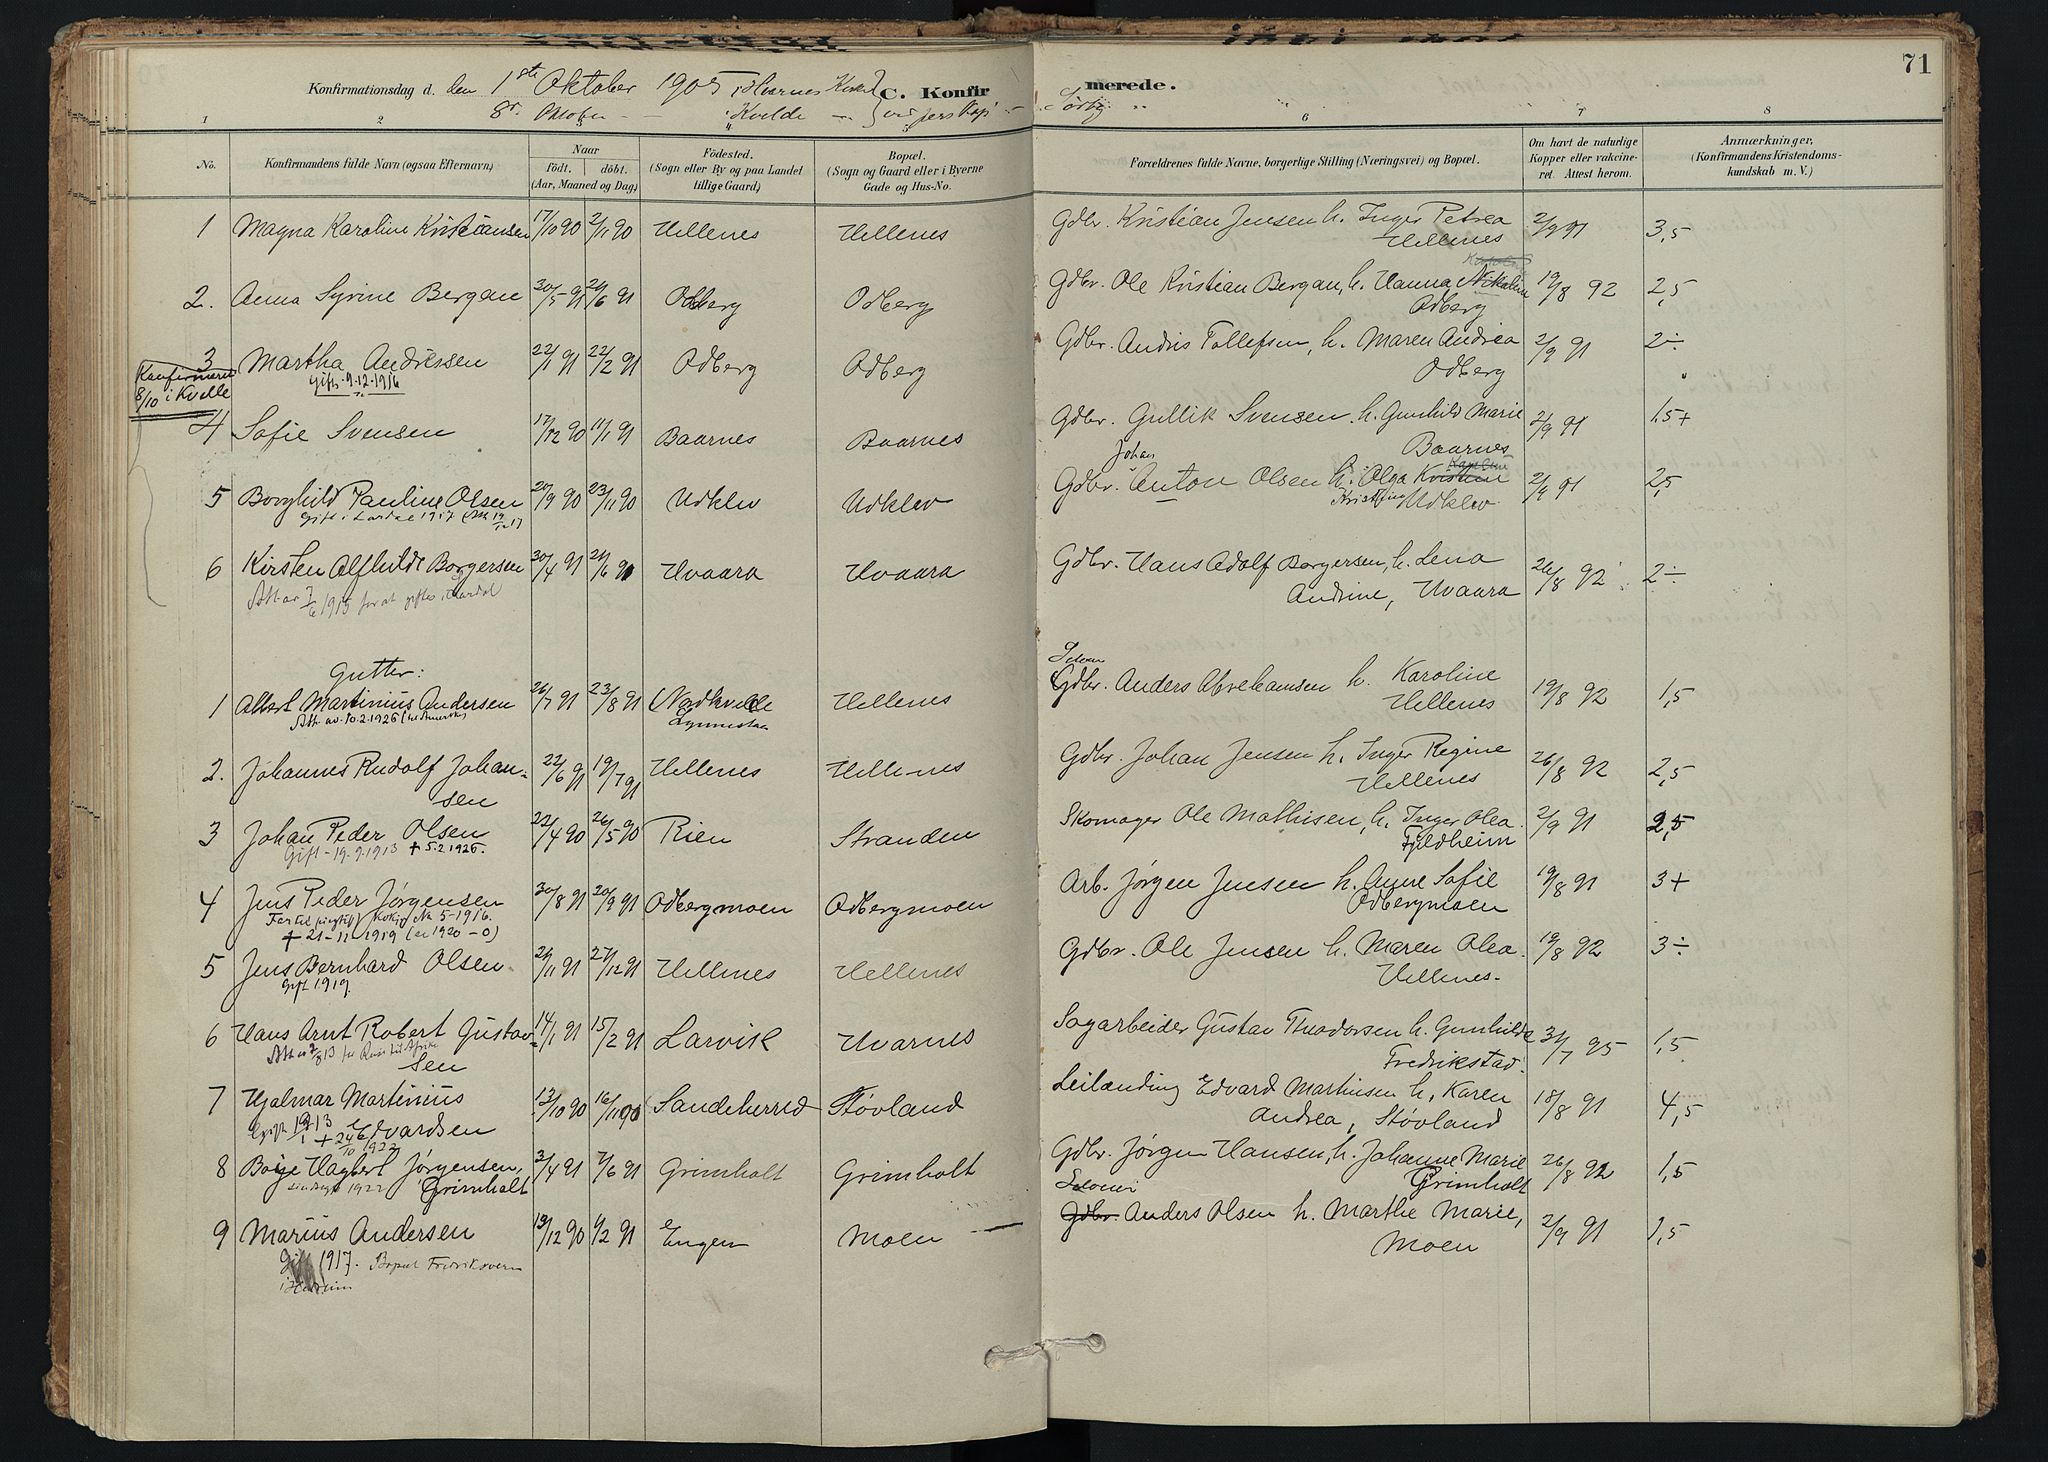 71
Konfirmationsdag d. den 1ste Oktober 1905 i Hvarnes Kirke
C. Konfirmerede.
8de Oktober — " Kvelde —
1 2 3 4 5 6 7 8
No.
Konfirmandens fulde Navn (ogsaa Efternavn)
Naar
födt. döbt.
(Aar, Maaned og Dag)
Födested.
(Sogn eller By og paa Landet
tillige Gaard)
Bopæl.
(Sogn og Gaard eller i Byerne
Gade og Hus-No.
Forældrenes fulde Navne, borgerlige Stilling (Næringsvei) og Bopæl.
Om havt de naturlige
Kopper eller vakcineret.
Attest herom.
Anmærkninger.
(Konfirmandens Kristendomskundskab
m. V.)
1 Magna Karoline Kristiansen 17/10 90 2/11 90 Hellenes Hellenes Gdbr. Kristian Jensen h. Inger Petrea 2/9 91 3,5
Hellenes
2. Anna Syrine Bergan 30/5 91 21/6 91 Odberg Odberg Gdbr. Ole Kristian Bergan, h. Hanna Nikoline 19/8 92 2,5
Odberg
3 Martha Andressen 22/1 91 22/2 91 Odberg Odberg Gdbr. Andris Tollefsen, h. Maren Andrea 2/9 91 2÷
Gift 9.12.1916
Odberg
Konfirmeret
8/10 i Kvelle
4 Sofie Svensen 17/12 90 11/1 91 Baarnes Baarnes Gdbr. Gullik Svensen h. Gunhild Marie 2/9 91 1,5+
Baarnes
Johan
5 Borghild Pauline Olsen 20/9 90 23/11 90 Udklev Udklev Gdbr. Anton Olsen h. Olga Kristine 2/9 91 2,5
Gift i Lardal 1917
Udklev
6 Kirsten Alfhilde Borgersen 30/4 91 21/6 91 Hvaara Hvaara Gdbr. Hans Adolf Borgersen, h. Lena 26/8 92 2÷
Att. av 7/6 1915 for at giftes i Lardal
Andrine, Hvaara
Gutter:
1 Albert Martinius Andersen 26/7 91 23/8 91 Nordkvelle Hellenes Gdbr. Anders Abrahamsen h. Karoline 19/8 92 1,5
Att. av 10.2.1926
Hellenes
2. Johannes Rudolf Johansen 22/6 91 19/7 91 Hellenes Hellenes Gdbr. Johan Jensen h. Inger Regine 26/8 92 2,5
Hellenes
3 Johan Peder Olsen 22/4 90 26/5 90 Rien Stranden Skomager Ole Mathisen, h. Inger Olea 2/9 91 2,5
Gift 19.9.1913 + 5.2.1926.
Fjeldheim
4 Jens Peder Jørgensen 30/8 91 20/9 91 Odbergmoen Odbergmoen Arb. Jørgen Jensen h. Anne Sofie 19/8 91 3+
No 5-1916.
+ 21-11-1919
Odbergmoen
5 Jens Bernhard Olsen 21/11 91 27/12 91 Hellenes Hellenes Gdbr. Ole Jensen h. Maren Olea 19/8 92 3÷
Gift 1919.
Hellenes.
6 Hans Arnt Robert Gustavsen 14/1 91 15/2 91 Larvik Hvarnes Sagarbeider Gustav Theodorsen h. Gunhilde 31/7 95 1,5
Fredrikstad.
7 Hjalmar Martinius 13/10 90 16/11 90 Sandeherred Støvland Leilænding Edvard Martinsen h. Karen 18/8 91 4,5
Edvardsen
Andrea, Støvland
8 Borge Hagbert Jørgensen, 3/4 91 7/6 91 Grimholt Grimholt Gdbr. Jørgen Hansen, h. Johanne Marie 26/8 92 1,5
Grimholt
Grimholt
9 Marius Andersen 19/12 90 1/2 91 Engen Moen Gdbr. Anders Olsen h. Marthe Marie, 2/9 91 1,5
Gift 1917. Bopæl Fredriksvern
Moen